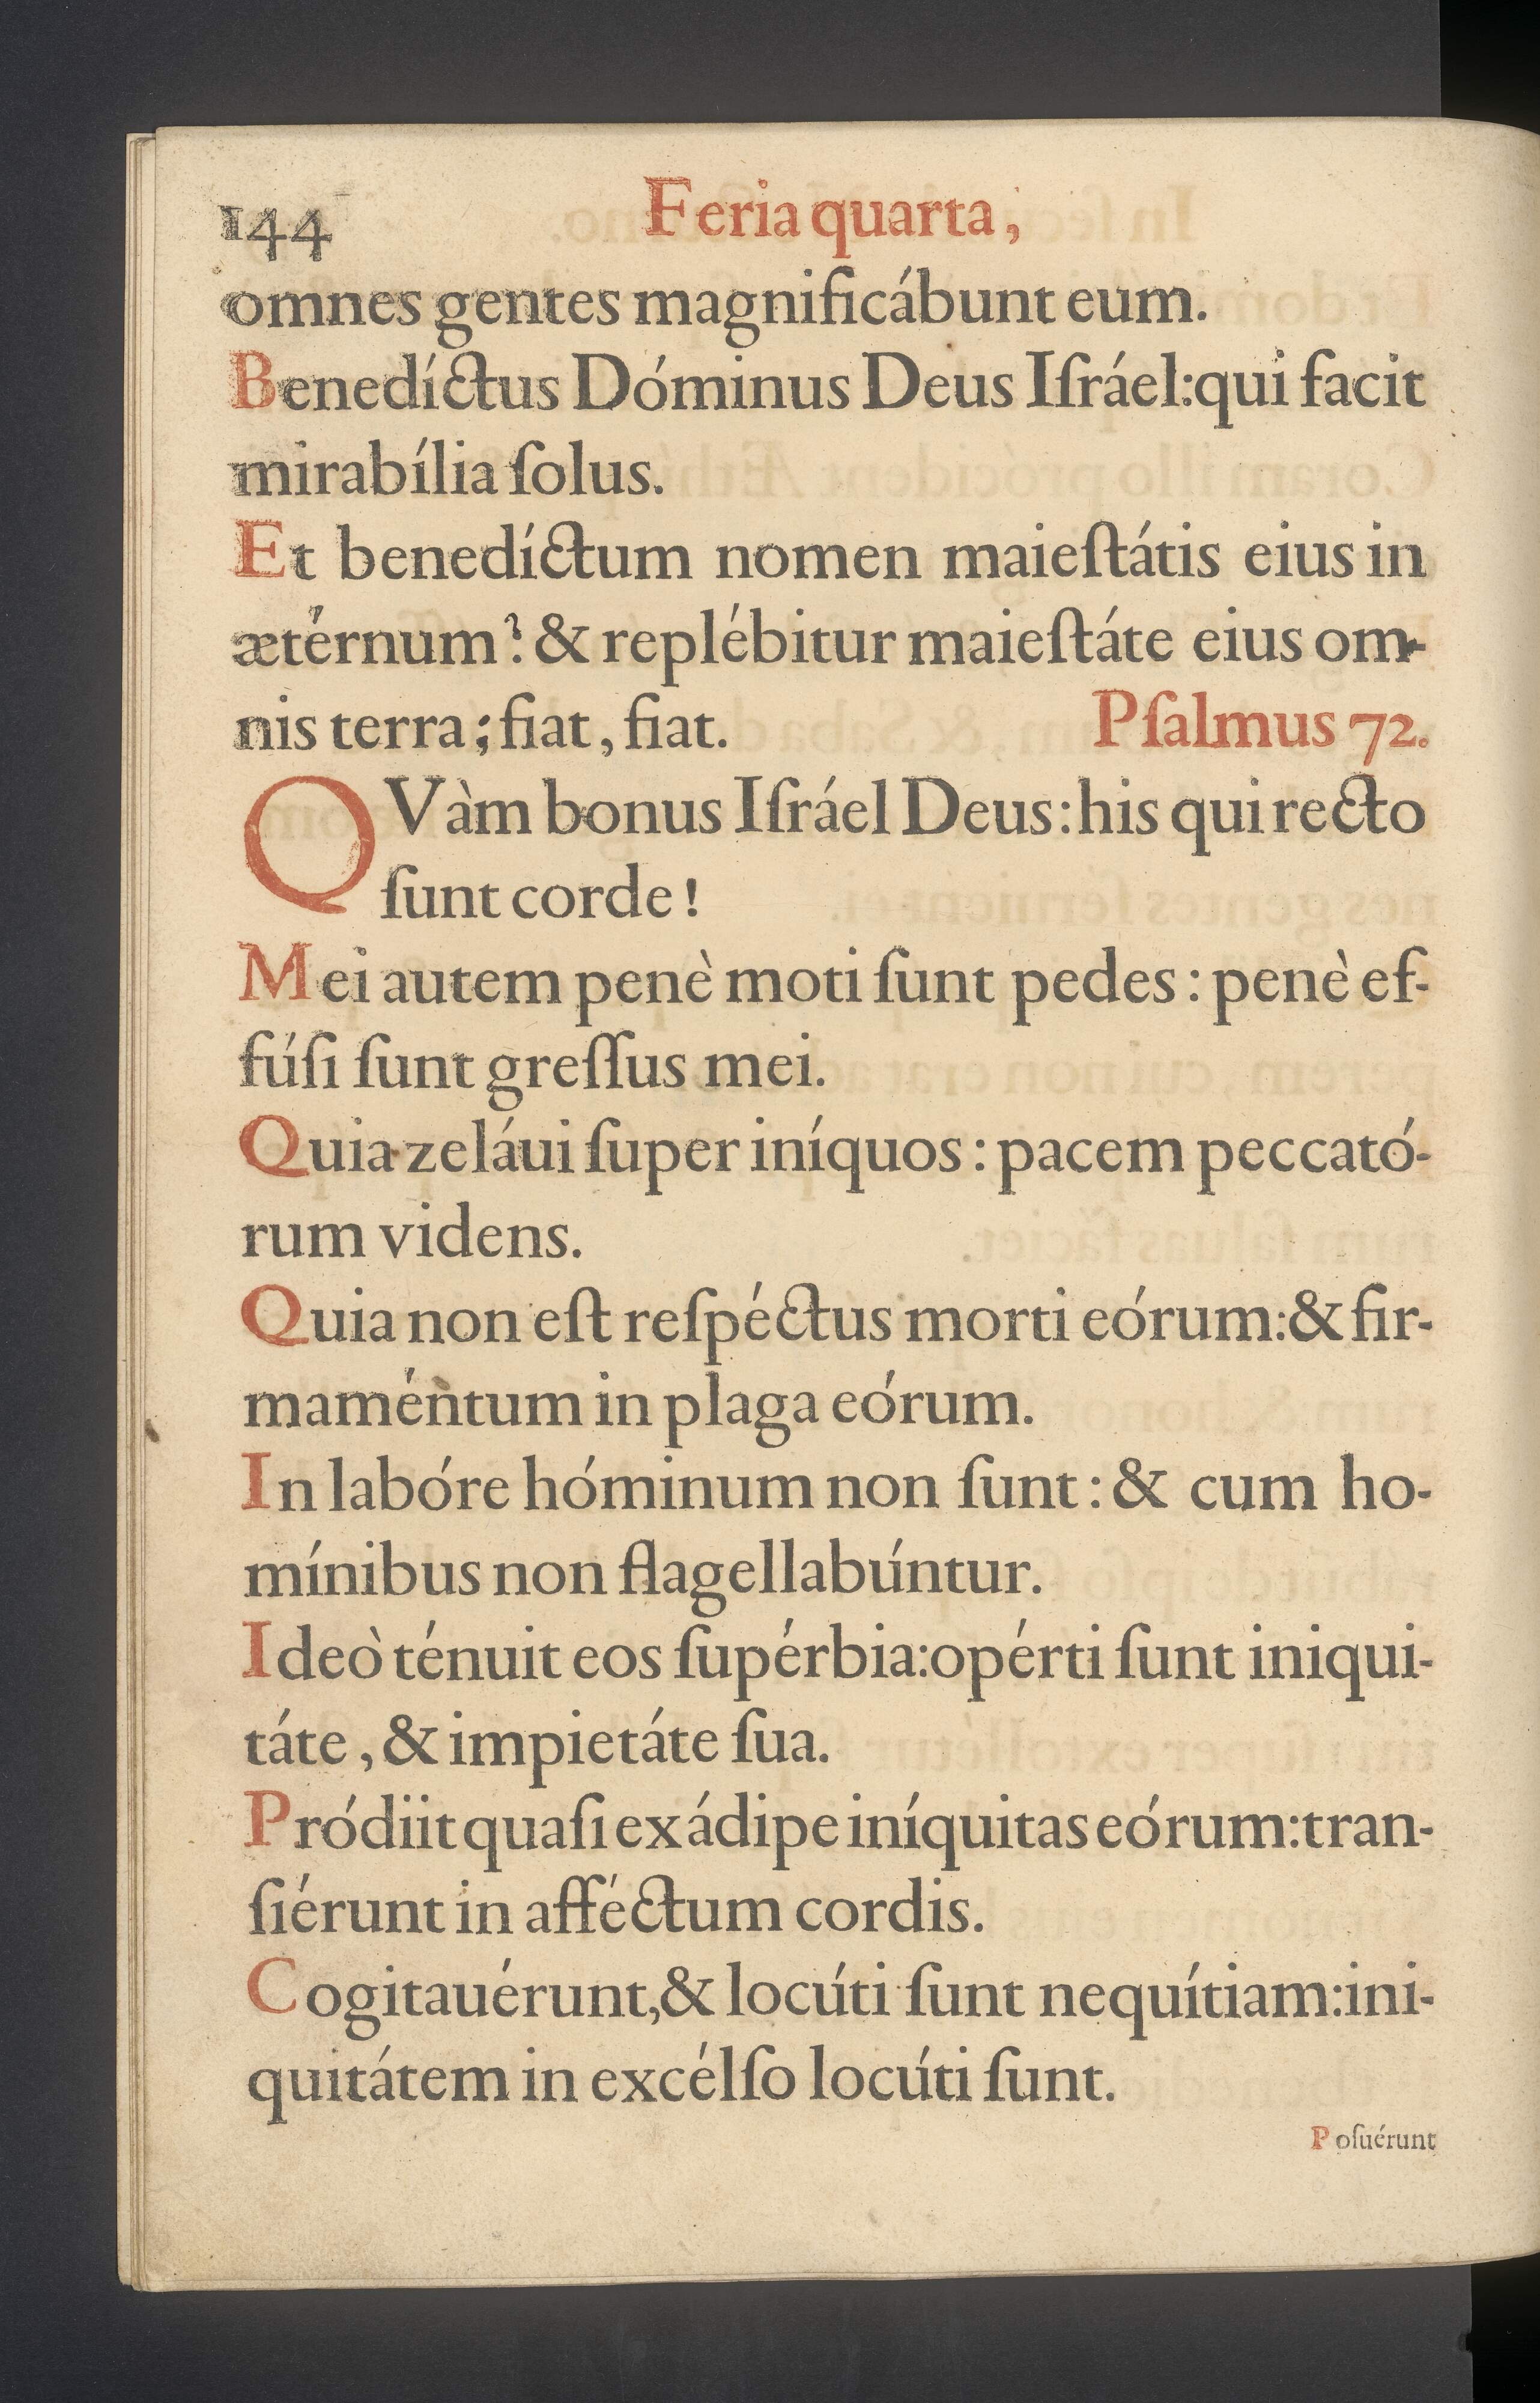 144
Feria quarta,
omnes gentes magnificábunt eum.
Benedíctus Dóminus Deus Iſráel:qui facit
mirabília ſolus.
Et benedíctum nomen maieſtátis eius in
ætérnum? & replébitur maieſtáte eius om-
nis terra; fiat, fiat.
Pſalmus 72.
QVàm bonus Iſráel Deus: his qui recto
ſunt corde!
Mei autem penè moti ſunt pedes: penè ef-
fúſi ſunt greſſus mei.
Quia zeláui ſuper iníquos: pacem peccató-
rum videns.
Quia non eſt reſpéctus morti eórum:& fir-
maméntum in plaga eórum.
In labóre hóminum non ſunt: & cum ho-
mínibus non flagellabúntur.
Ideò ténuit eos ſupérbia:opérti ſunt iniqui-
táte, & impietáte ſua.
Pródiit quaſi ex ádipe iníquitas eórum:tran-
ſiérunt in afféctum cordis.
Cogitauérunt,& locúti ſunt nequítiam:ini-
quitátem in excélſo locúti ſunt.
Poſuérunt